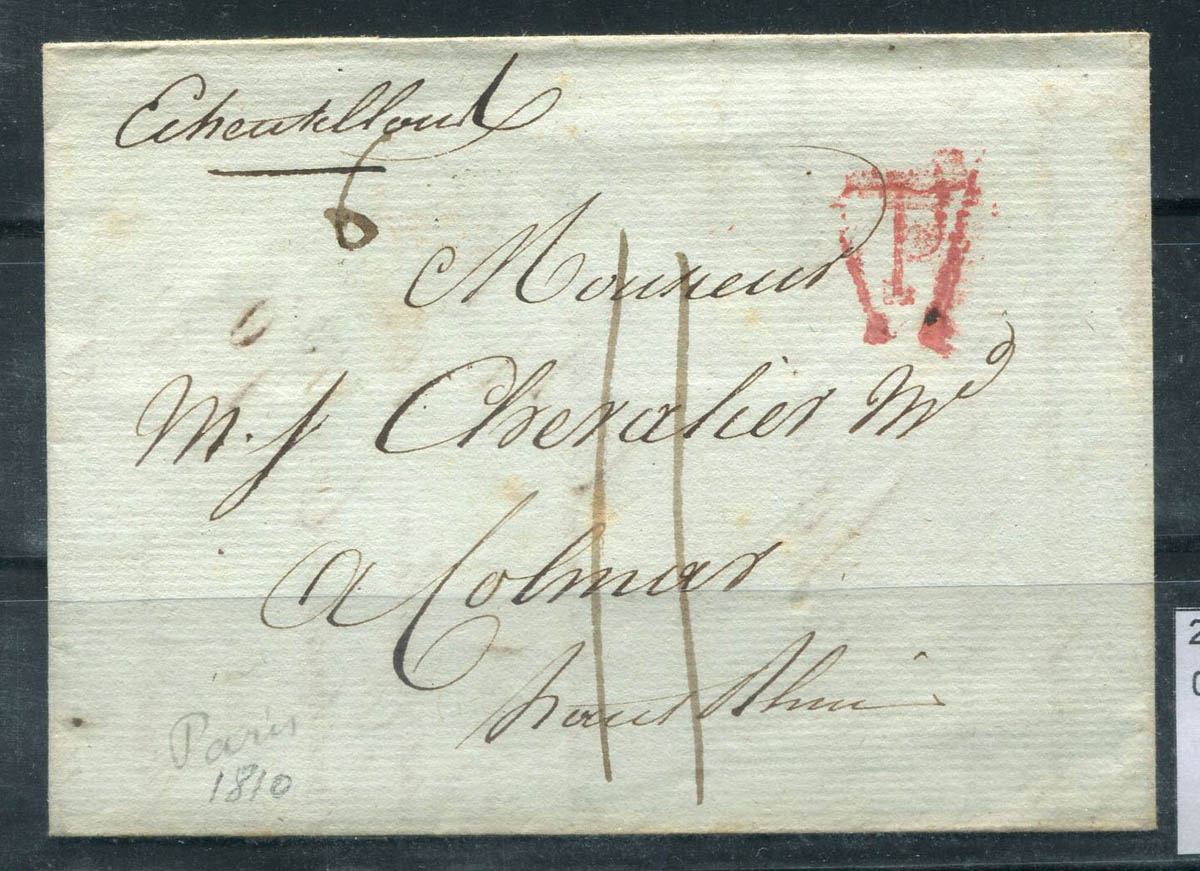 Echentillond
6
P
Monsieur
M. J Chevalier Md
a Colmar
haut Rhin
11
Paris
1810
2